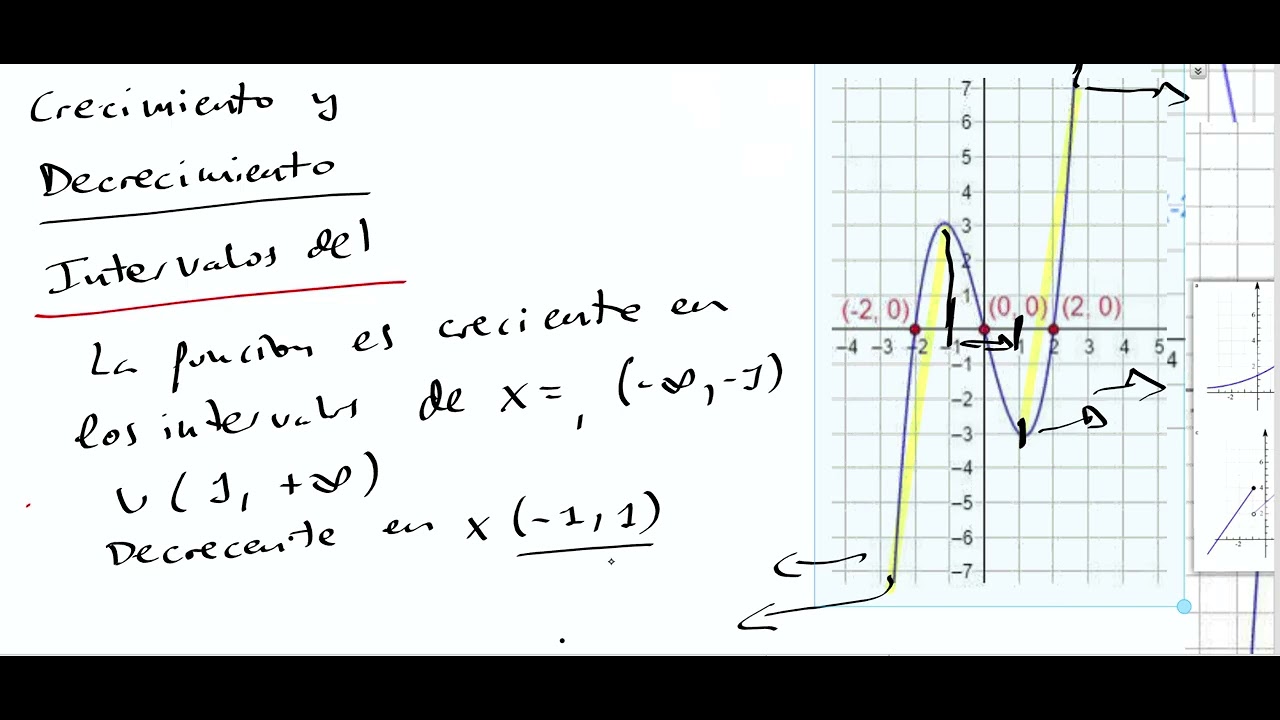 Crecimiento y
Decrecimiento
Intervalos del
La función es creciente en
los intervals de x=, (-∞,-1)
∪ (1, +∞)
Decrecente en x (-1,1)
7
6
5
4
3
2
1
(-2, 0) (0, 0) (2, 0)
-4 -3 -2 -1 1 2 3 4 5
-1
-2
-3
-4
-5
-6
-7
4